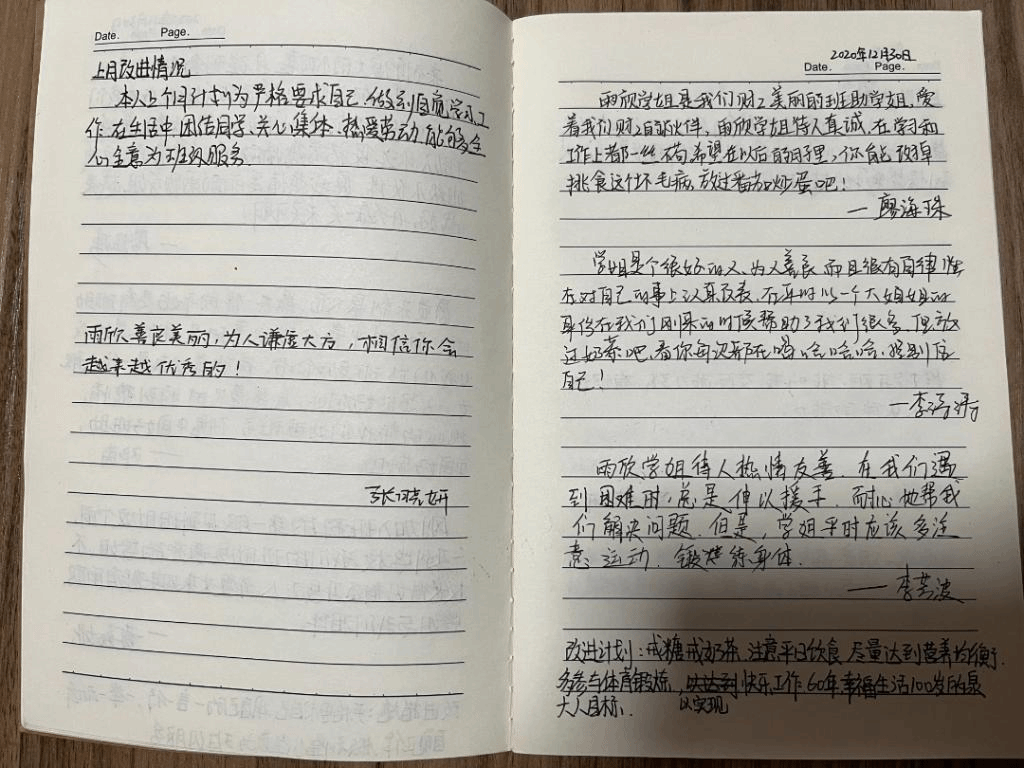 Date. Page.
上月改进情况
本人上个月计划为严格要求自己,做到自觉学习工
作,在生活中团结同学,关心集体,热爱劳动,能够全
心全意为班级服务
雨欣善良美丽,为人谦虚大方,相信你会
越来越优秀的!
张晓妍
2020年12月30日
Date. Page.
雨欣学姐是我们财2美丽的班助学姐,爱
着我们财2的伙伴,雨欣学姐待人真诚,在学习和
工作上都一丝不苟,希望在以后的日子里,你能改掉
挑食这个坏毛病,放过番茄炒蛋吧!
— 廖海珠
学姐是个很好的人,为人善良,而且很有自律性
在对自己的事上认真负责,在平时以一个大姐姐的
身份在我们刚来的时候帮助了我们很多,但放
过奶茶吧,看你每次都在喝哈哈哈,提别信
自己!
—李
雨欣学姐待人热情友善,在我们遇
到困难时,总是伸以援手,耐心地帮我
们解决问题.但是,学姐平时应该多注
意运动,锻练身体.
——李芸波
改进计划:戒糖戒奶茶,注意平日饮食,尽量达到营养均衡.
多参与体育锻炼,以达到快乐工作60年幸福生活100岁的最
以实现
大人目标.